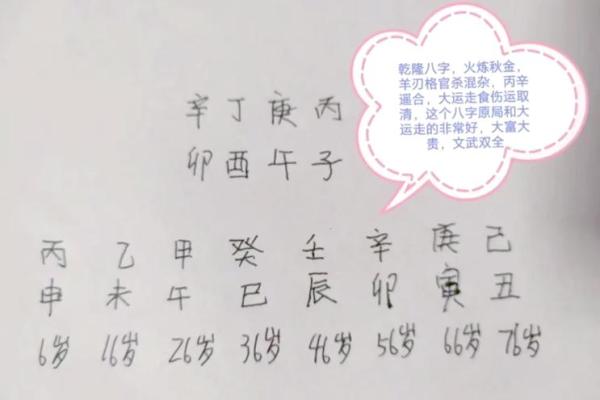 乾隆八字，火炼秋金，
羊刃格官杀混杂，丙辛
遥合，大运走食伤运取
清，这个八字原局和大
运走的非常好，大富大
贵，文武双全
辛丁庚丙
卯酉午子
丙 乙 甲 癸 壬 辛 庚 己
申 未 午 巳 辰 卯 寅 丑
6岁 16岁 26岁 36岁 46岁 56岁 66岁 76岁